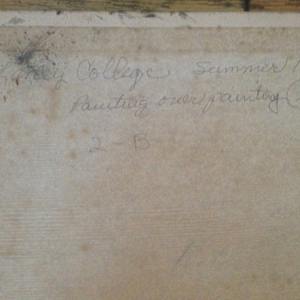 College Summer
Painting over painting
2-B